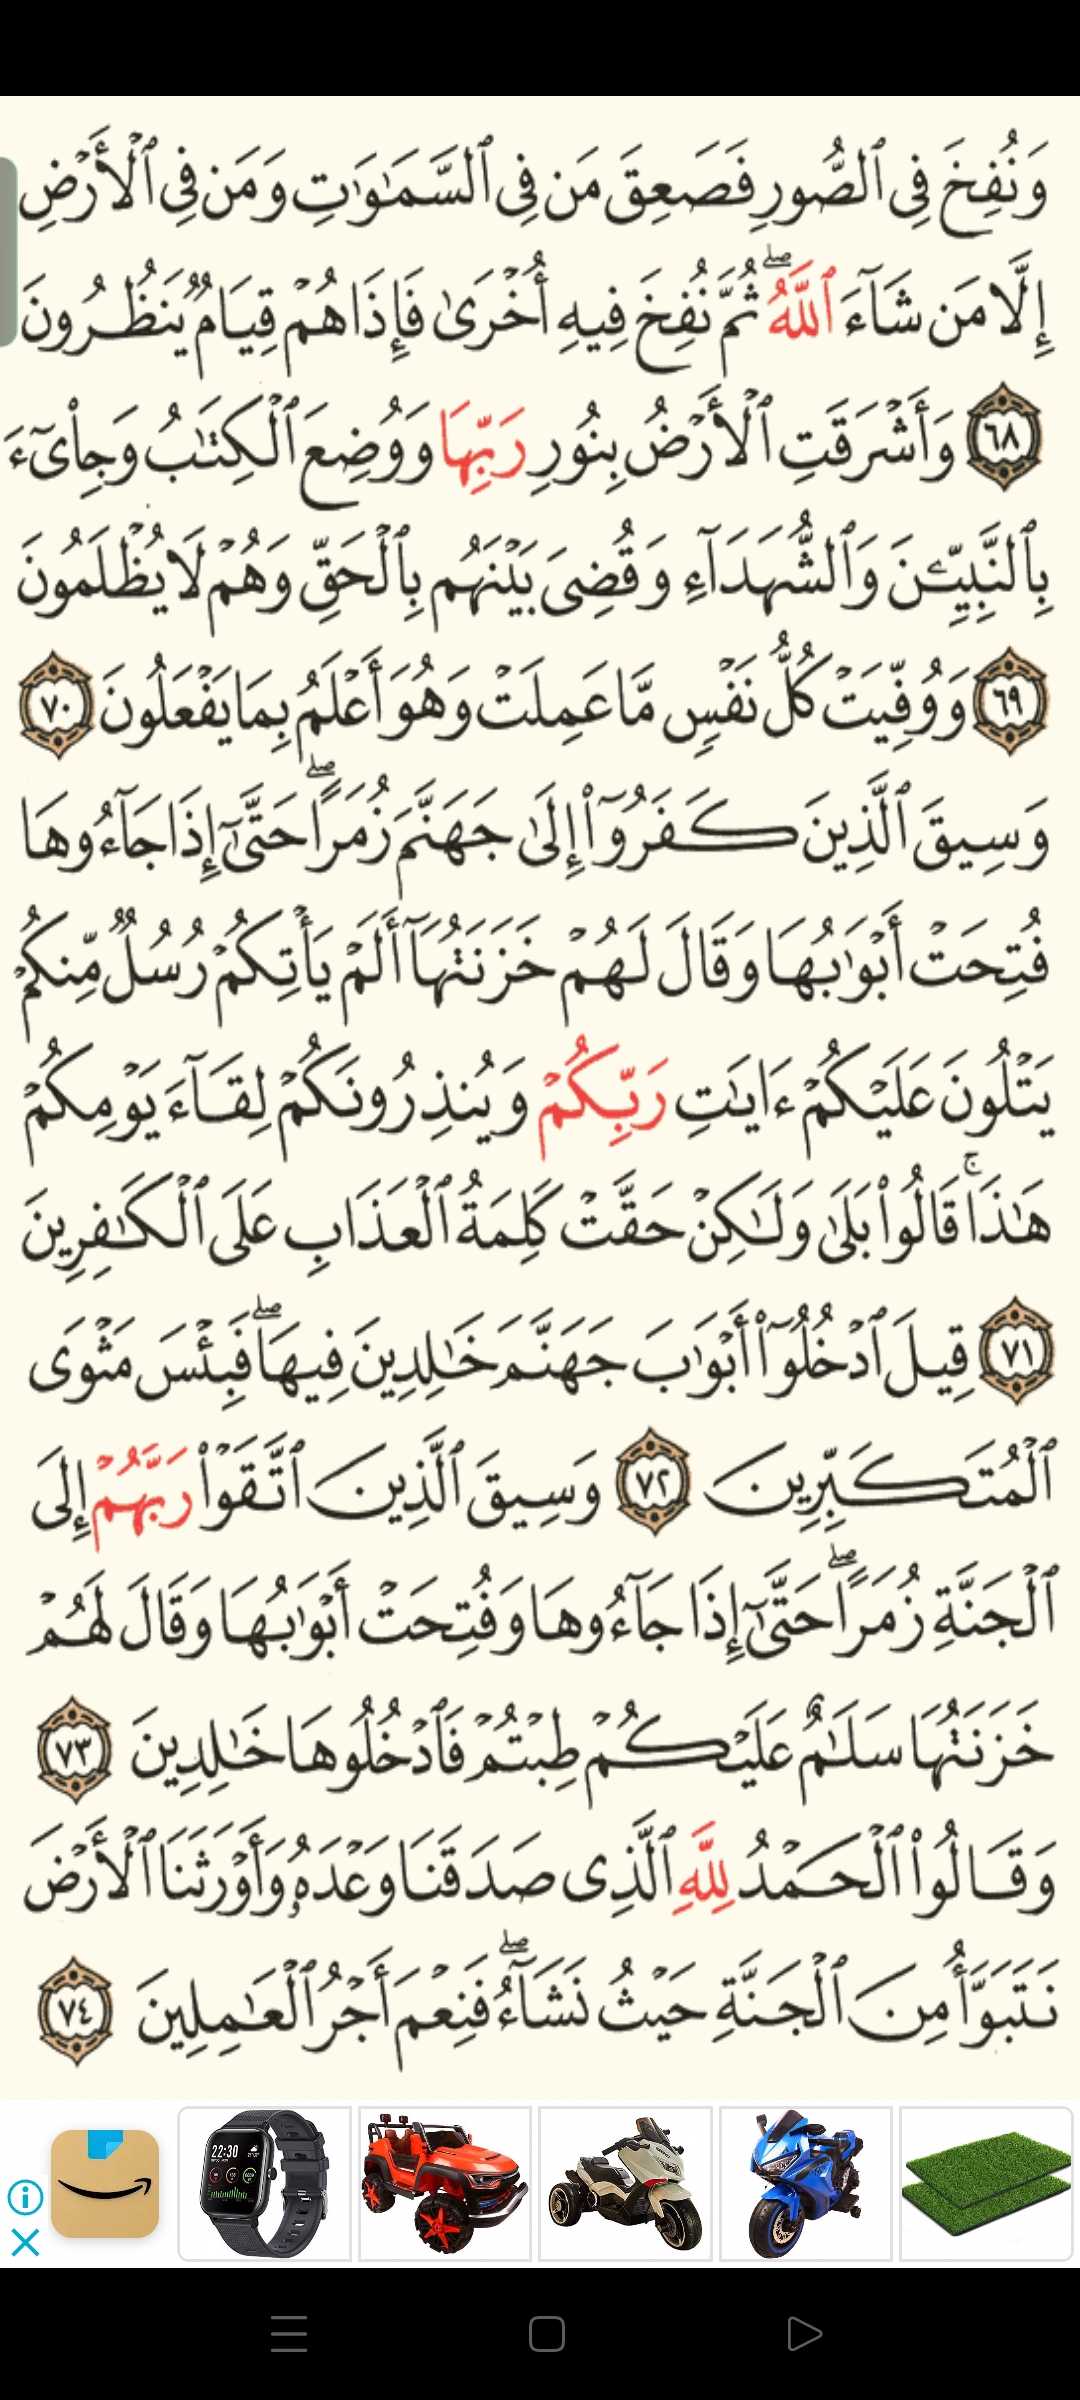 وَنُفِخَ فِى ٱلصُّورِ فَصَعِقَ مَن فِى ٱلسَّمَـٰوَٰتِ وَمَن فِى ٱلْأَرْضِ
إِلَّا مَن شَآءَ ٱللَّهُ ۖ ثُمَّ نُفِخَ فِيهِ أُخْرَىٰ فَإِذَا هُمْ قِيَامٌ يَنظُرُونَ
٦٨ وَأَشْرَقَتِ ٱلْأَرْضُ بِنُورِ رَبِّهَا وَوُضِعَ ٱلْكِتَـٰبُ وَجِا۟ىٓءَ
بِٱلنَّبِيِّـۧنَ وَٱلشُّهَدَآءِ وَقُضِىَ بَيْنَهُم بِٱلْحَقِّ وَهُمْ لَا يُظْلَمُونَ
٦٩ وَوُفِّيَتْ كُلُّ نَفْسٍ مَّا عَمِلَتْ وَهُوَ أَعْلَمُ بِمَا يَفْعَلُونَ ٧٠
وَسِيقَ ٱلَّذِينَ كَفَرُوٓا۟ إِلَىٰ جَهَنَّمَ زُمَرًا ۖ حَتَّىٰٓ إِذَا جَآءُوهَا
فُتِحَتْ أَبْوَٰبُهَا وَقَالَ لَهُمْ خَزَنَتُهَآ أَلَمْ يَأْتِكُمْ رُسُلٌ مِّنكُمْ
يَتْلُونَ عَلَيْكُمْ ءَايَـٰتِ رَبِّكُمْ وَيُنذِرُونَكُمْ لِقَآءَ يَوْمِكُمْ
هَـٰذَا ۚ قَالُوا۟ بَلَىٰ وَلَـٰكِنْ حَقَّتْ كَلِمَةُ ٱلْعَذَابِ عَلَى ٱلْكَـٰفِرِينَ
٧١ قِيلَ ٱدْخُلُوٓا۟ أَبْوَٰبَ جَهَنَّمَ خَـٰلِدِينَ فِيهَا ۖ فَبِئْسَ مَثْوَى
ٱلْمُتَكَبِّرِينَ ٧٢ وَسِيقَ ٱلَّذِينَ ٱتَّقَوْا۟ رَبَّهُمْ إِلَى
ٱلْجَنَّةِ زُمَرًا ۖ حَتَّىٰٓ إِذَا جَآءُوهَا وَفُتِحَتْ أَبْوَٰبُهَا وَقَالَ لَهُمْ
خَزَنَتُهَا سَلَـٰمٌ عَلَيْكُمْ طِبْتُمْ فَٱدْخُلُوهَا خَـٰلِدِينَ ٧٣
وَقَالُوا۟ ٱلْحَمْدُ لِلَّهِ ٱلَّذِى صَدَقَنَا وَعْدَهُۥ وَأَوْرَثَنَا ٱلْأَرْضَ
نَتَبَوَّأُ مِنَ ٱلْجَنَّةِ حَيْثُ نَشَآءُ ۖ فَنِعْمَ أَجْرُ ٱلْعَـٰمِلِينَ ٧٤
22:30